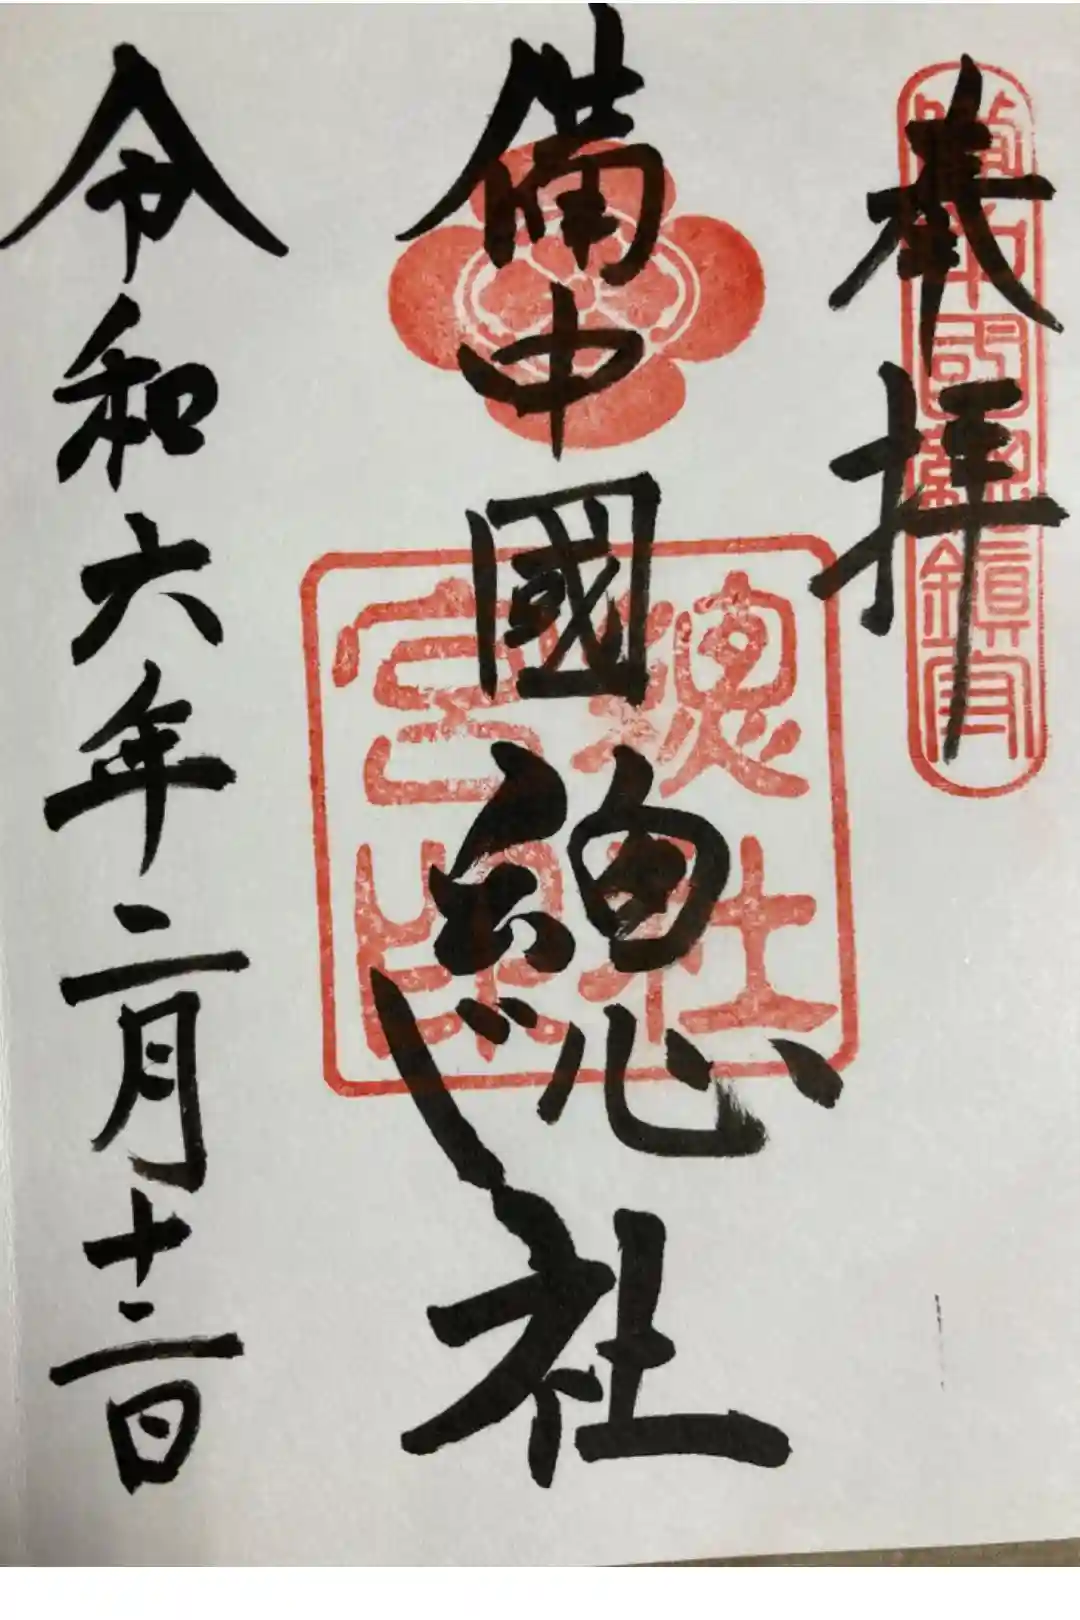 奉拝
備中國總社
令和六年二月十二日
備中國総鎮守
総社宮印